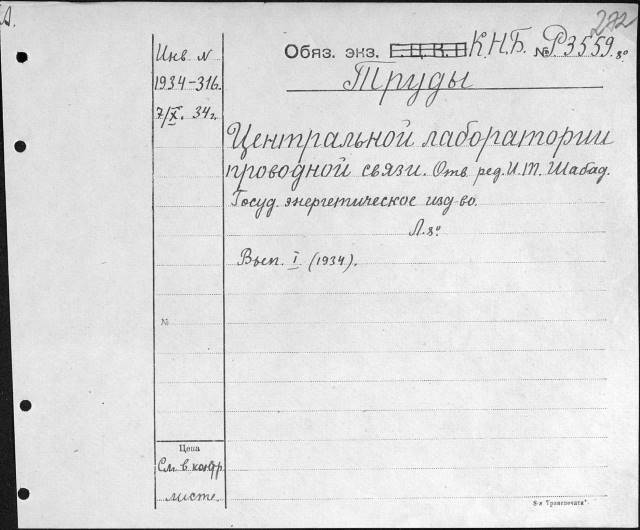 А.
272
Обяз. экз. Г.Ц.К.П К.Н.Б. № Р3559.8°
Труды
Инв N
1934-316.
7/X. 34г.
Центральной лаборатории
проводной связи. Отв. ред. И.М. Шабад.
Госуд. энергетическое изд-во.
Л. 8°
Вып. I (1934).
№
Цена
См. в контр
листе
8-я "Транспечати".